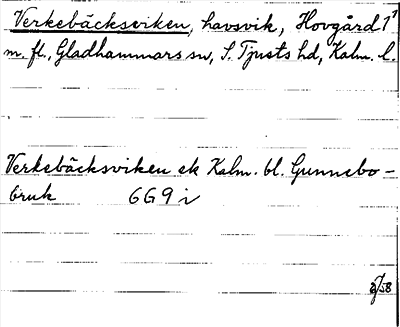 Verkebäcksviken, havsvik, Hovgård 1¹
m. fl., Gladhammars sn, S. Tjusts hd, Kalm. l.
Verkebäcksviken ek Kalm. bl. Gunnebo-
bruk 6G9i